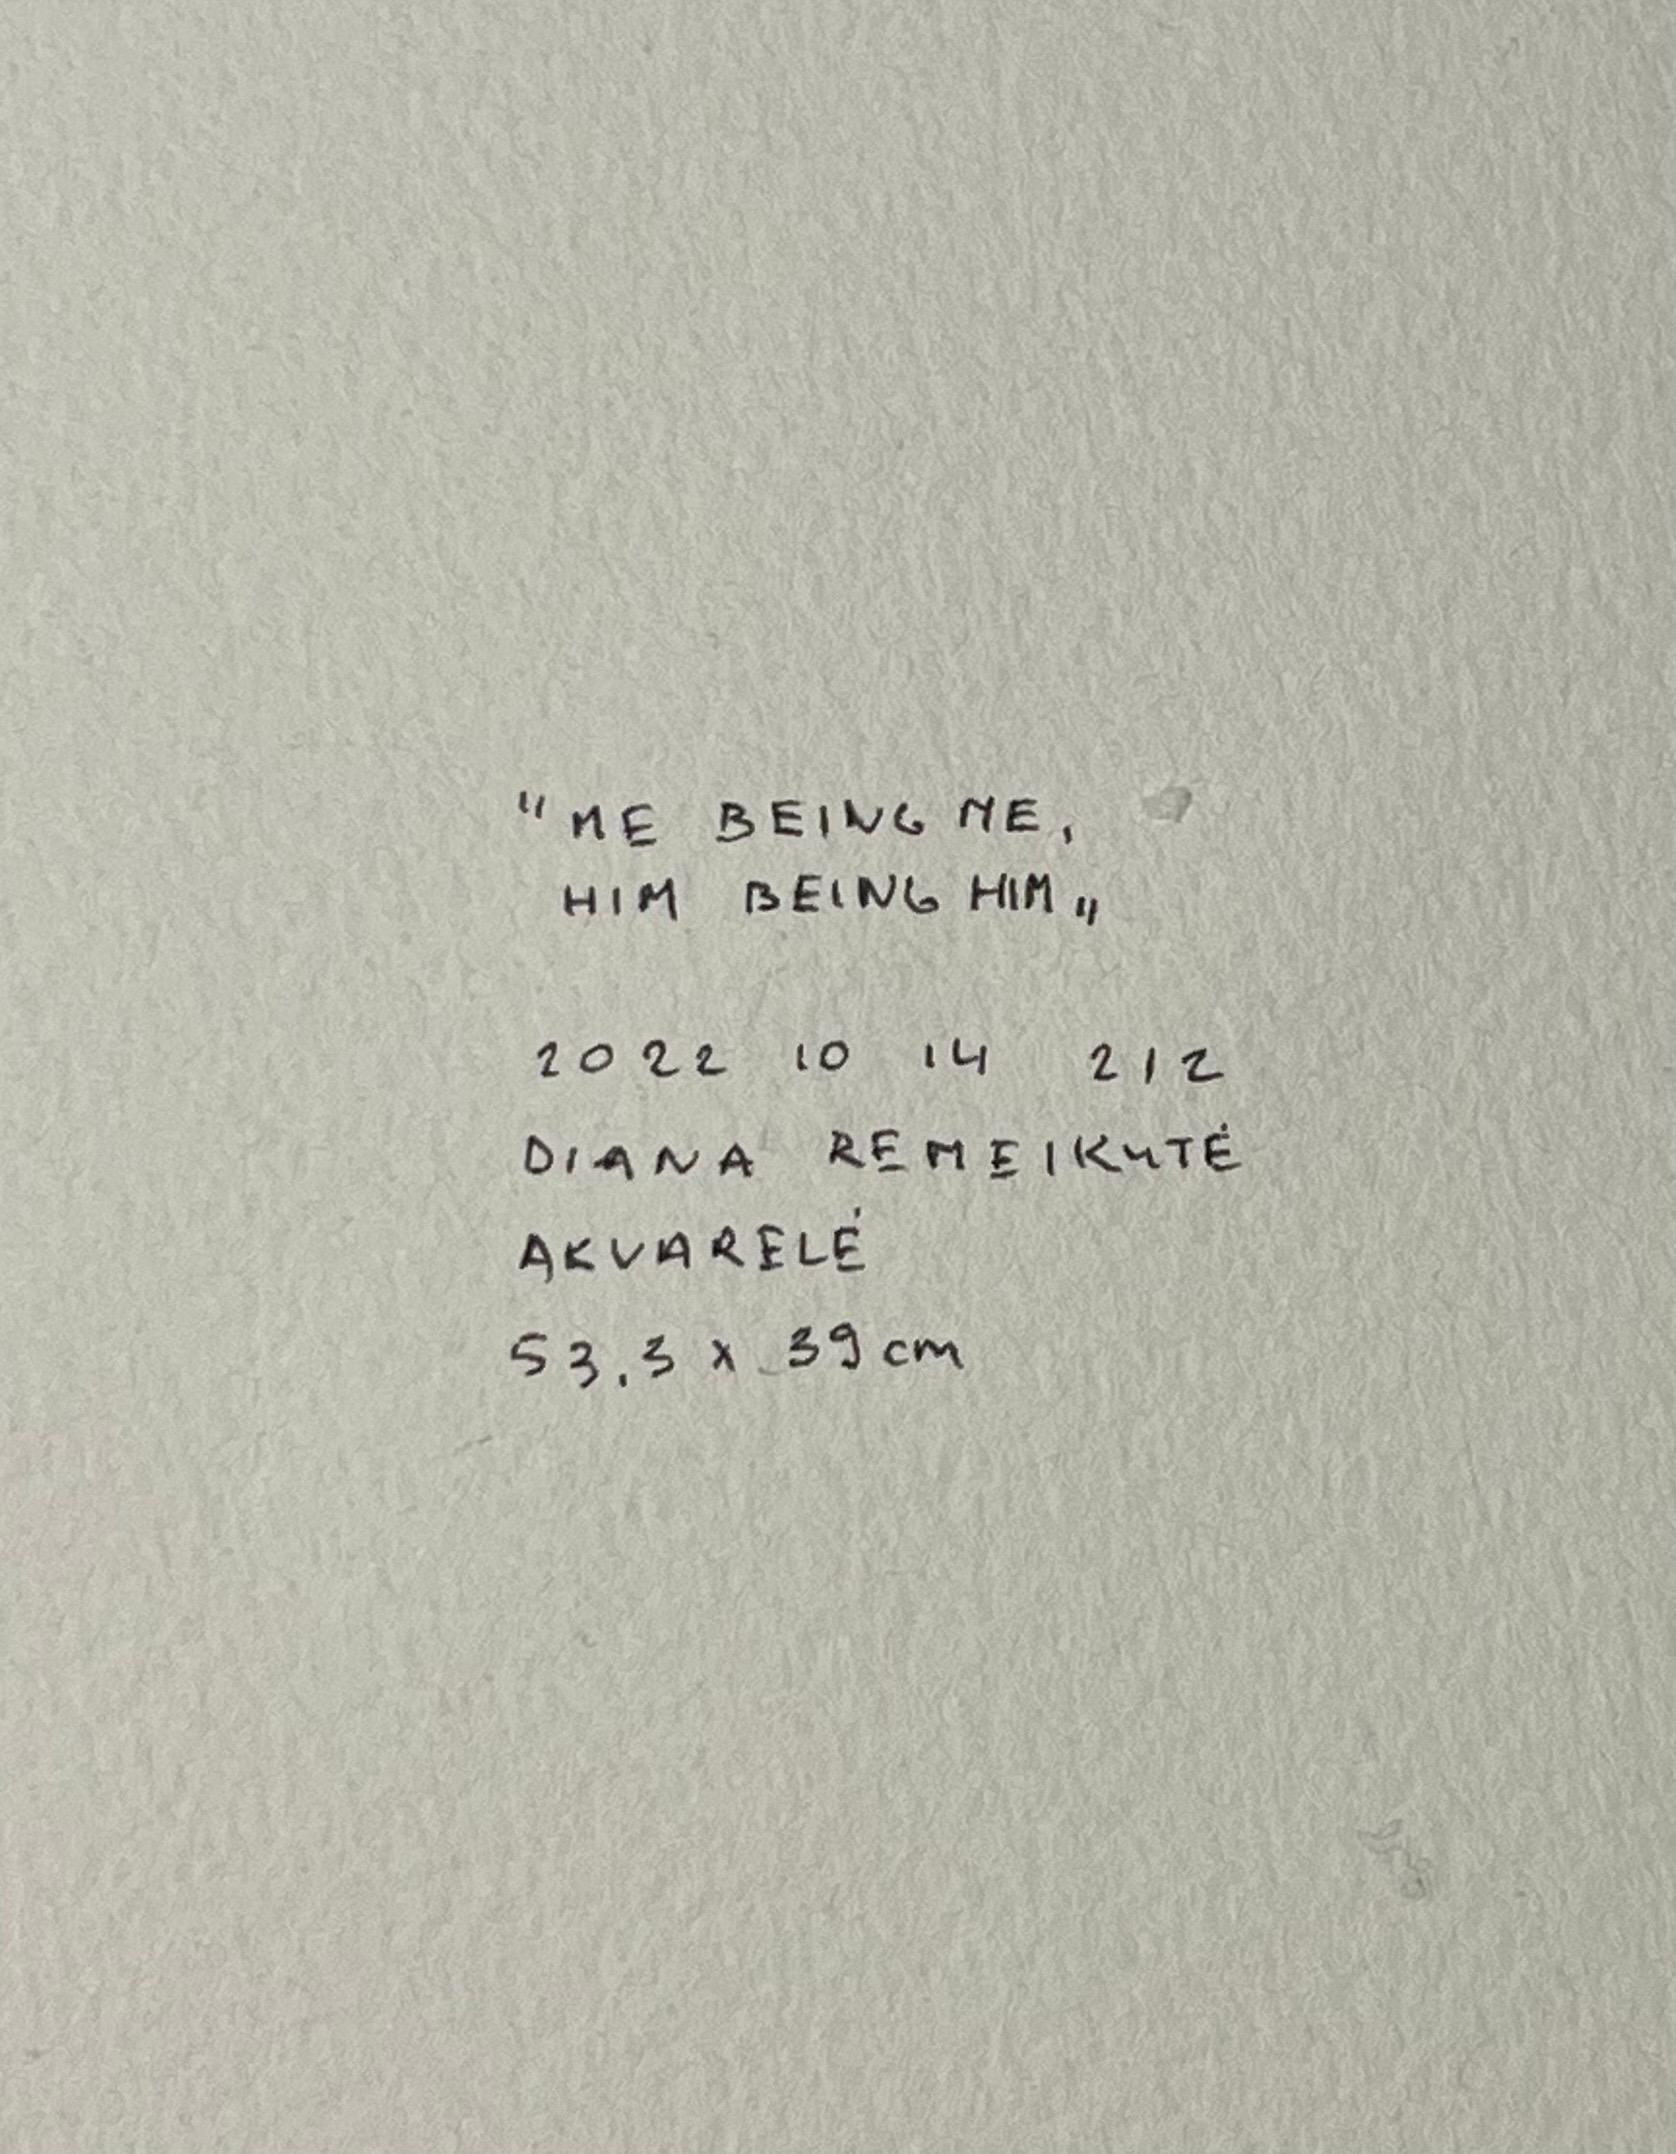 "ME BEING ME,
HIM BEING HIM„
2022 10 14 212
DIANA REMEIKYTĖ
AKVARELĖ
53,3 x 39 cm